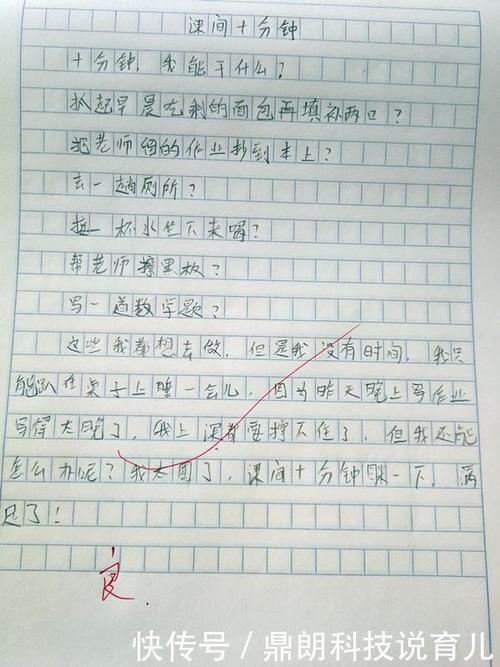 课间十分钟
十分钟,我能干什么?
抓起早晨吃剩的面包再填补两口?
把老师留的作业抄到本上?
去一趟厕所?
接一杯水坐下来喝?
帮老师擦黑板?
写一道数学题?
这些我都想去做,但是我没有时间,我只
能趴在桌子上睡一会儿,因为昨天晚上写作业
写得太晚了,我上课都要撑不住了,但我还能
怎么办呢?我太困了,课间十分钟眯一下,满
足了!
良
快传号/鼎朗科技说育儿